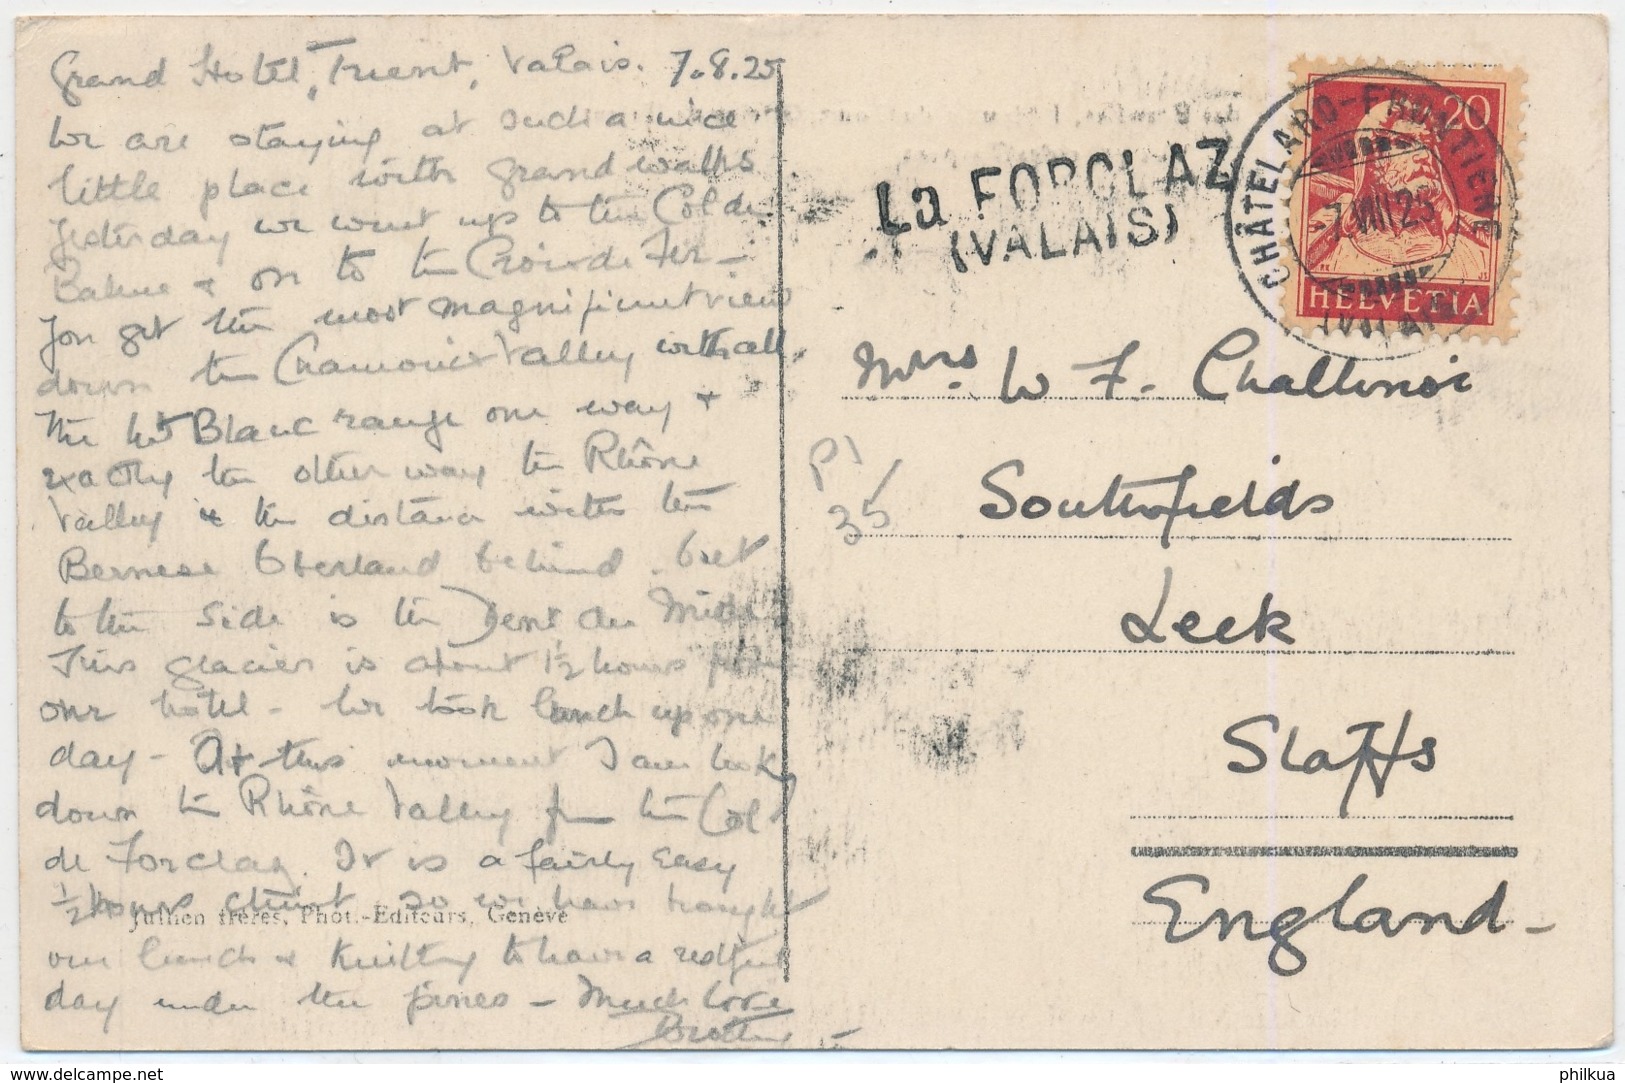 Grand Hotel, Trient, Valais. 7.8.25
We are staying at such a nice
little place with grand walks
Yesterday we went up to the Col de
Balme & on to the Croix de Fer -
You get the most magnificent view
down the Chamonix Valley with all
the Mt Blanc range one way &
exactly the other way the Rhône
Valley & the distance with the
Bernese Oberland behind. but
to the side is the Dent du Midi
This glacier is about 1½ hours from
our hotel - We took lunch up one
day - At this moment I am looking
down the Rhône Valley from the Col
de Forclaz. It is a fairly easy
½ hours climb so we have brought
Jullien frères, Phot.-Editeurs, Genève
our lunch & knitting to have a restful
day under the pines - Much love
La FORCLAZ
(VALAIS)
CHÂTELARD-FRONTIÈRE
-7.VIII.25
(VALAIS)
20
HELVETIA
Mrs. W F. Challinor
Southfields
Leek
Staffs
England -
P1
35
www.delcampe.net
philkua